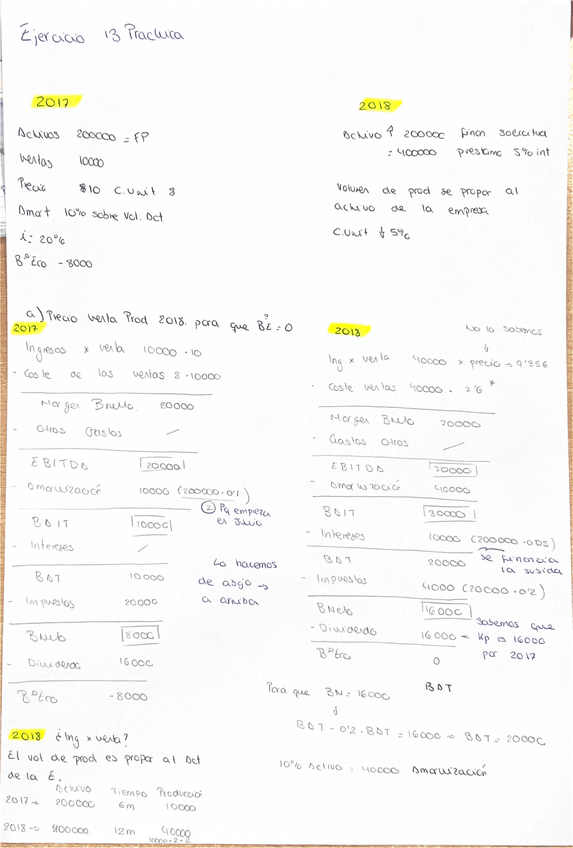 Ejercicio 13 Practica
2017
Activos 200000 = FP
Ventas 10000
Precio $10 C.Unit 8
Amort 10% sobre Vol. Act
i: 20%
BºEco -8000
2018
Activo ↑ 200000 finan
= 400000 prestamo 5% int
Volumen de prod se propor al
activo de la empresa
C.Unit ↓ 5%
a) Precio venta Prod 2018 para que BºE = 0
2017
Ingresos x venta 10000 · 10
- Coste de las ventas 8 · 10000
Margen Bruto 20000
- Otros Gastos /
EBITDA 20000
- Amortización 10000 (200000 · 0'1)
② Pq empieza
en Junio
BAIT 10000
- Intereses /
BAT 10000
- Impuestos 20000
BNeto 8000
- Dividendo 16000
BºEco -8000
Lo hacemos
de abajo →
a arriba
2018
No lo sabemos
↓
Ing x venta 40000 x precio → 9'356
- Coste ventas 40000 · 7'6 *
Margen Bruto 70000
- Gastos otros /
EBITDA 70000
- Amortización 40000
BAIT 30000
- Intereses 10000 (200000 · 0.05)
se financia
la subida
BAT 20000
- Impuestos 4000 (20000 · 0'2)
BNeto 16000
- Dividendo 16000 → Sabemos que
Kp es 16000
por 2017
BºEco 0
Para que BN = 16000 BAT
↓
BAT - 0'2 · BAT = 16000 → BAT = 20000
10% Activo = 40000 Amortización
2018 ¿Ing x venta?
El vol de prod es propor al Act
de la E.
Activo Tiempo Producción
2017 → 200000 6m 10000
2018 → 400000 12m 40000
10000 · 2 · 2